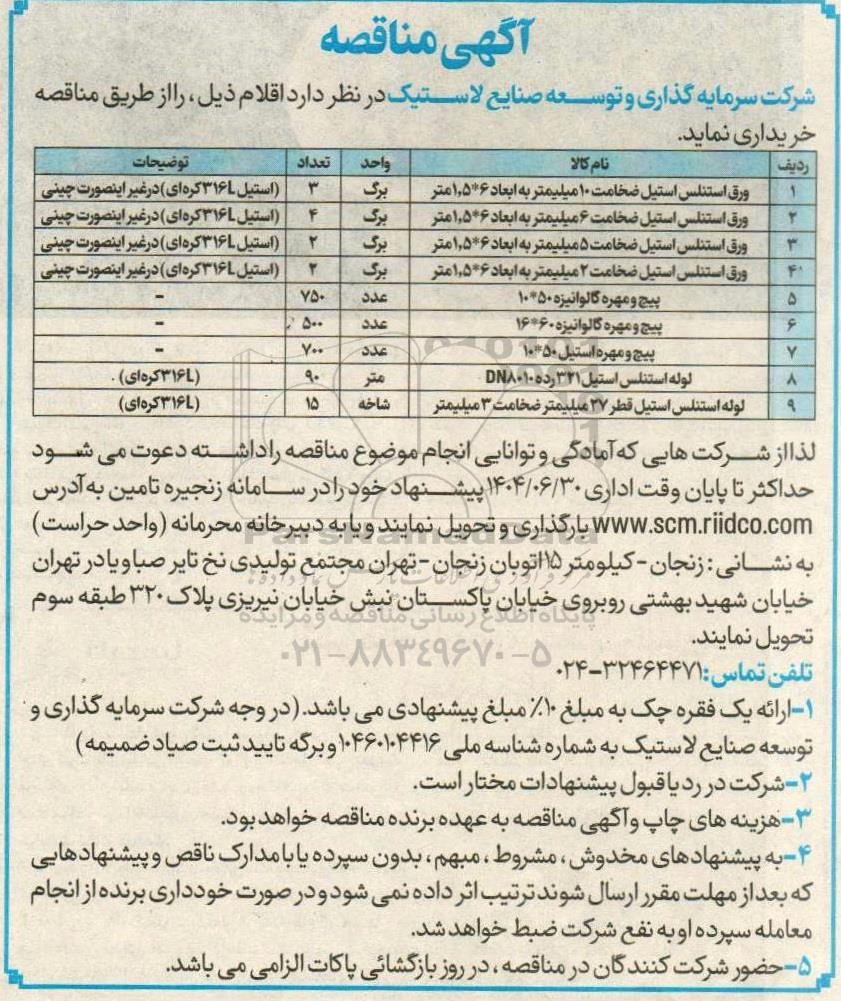 آگهی مناقصه
شرکت سرمایه گذاری و توسعه صنایع لاستیک در نظر دارد اقلام ذیل ، را از طریق مناقصه
خریداری نماید.
ردیف نام کالا واحد تعداد توضیحات
۱ ورق استنلس استیل ضخامت ۱۰ میلیمتر به ابعاد ۶*۱,۵ متر برگ ۳ (استیل ۳۱۶L کره‌ای) درغیر اینصورت چینی
۲ ورق استنلس استیل ضخامت ۶ میلیمتر به ابعاد ۶*۱,۵ متر برگ ۴ (استیل ۳۱۶L کره‌ای) درغیر اینصورت چینی
۳ ورق استنلس استیل ضخامت ۵ میلیمتر به ابعاد ۶*۱,۵ متر برگ ۲ (استیل ۳۱۶L کره‌ای) درغیر اینصورت چینی
۴ ورق استنلس استیل ضخامت ۲ میلیمتر به ابعاد ۶*۱,۵ متر برگ ۲ (استیل ۳۱۶L کره‌ای) درغیر اینصورت چینی
۵ پیچ و مهره گالوانیزه ۵۰*۱۰ عدد ۷۵۰ -
۶ پیچ و مهره گالوانیزه ۶۰*۱۶ عدد ۵۰۰ -
۷ پیچ و مهره استیل ۵۰*۱۰ عدد ۷۰۰ -
۸ لوله استنلس استیل ۳۲۱ رده ۱۰ DN۸۰ متر ۹۰ (۳۱۶L کره‌ای)
۹ لوله استنلس استیل قطر ۲۷ میلیمتر ضخامت ۳ میلیمتر شاخه ۱۵ (۳۱۶L کره‌ای)
لذا از شرکت هایی که آمادگی و توانایی انجام موضوع مناقصه را داشته دعوت می شود
حداکثر تا پایان وقت اداری ۱۴۰۴/۰۶/۳۰ پیشنهاد خود را در سامانه زنجیره تامین به آدرس
www.scm.riidco.com بارگذاری و تحویل نمایند و یا به دبیرخانه محرمانه (واحد حراست)
به نشانی : زنجان - کیلومتر ۱۵ اتوبان زنجان - تهران مجتمع تولیدی نخ تایر صبا و یا در تهران
خیابان شهید بهشتی روبروی خیابان پاکستان نبش خیابان نیریزی پلاک ۳۲۰ طبقه سوم
تحویل نمایند.
پایگاه اطلاع رسانی مناقصه و مزایده
۰۲۱-۸۸۳۴۹۶۷۰-۵
تلفن تماس: ۳۲۴۶۴۴۷۱-۰۲۴
۱-ارائه یک فقره چک به مبلغ ۱۰٪ مبلغ پیشنهادی می باشد. (در وجه شرکت سرمایه گذاری و
توسعه صنایع لاستیک به شماره شناسه ملی ۱۰۴۶۰۱۰۴۴۱۶ و برگه تایید ثبت صیاد ضمیمه)
۲-شرکت در رد یا قبول پیشنهادات مختار است.
۳-هزینه های چاپ و آگهی مناقصه به عهده برنده مناقصه خواهد بود.
۴-به پیشنهادهای مخدوش ، مشروط ، مبهم ، بدون سپرده یا با مدارک ناقص و پیشنهادهایی
که بعد از مهلت مقرر ارسال شوند ترتیب اثر داده نمی شود و در صورت خودداری برنده از انجام
معامله سپرده او به نفع شرکت ضبط خواهد شد.
۵-حضور شرکت کنندگان در مناقصه ، در روز بازگشائی پاکات الزامی می باشد.